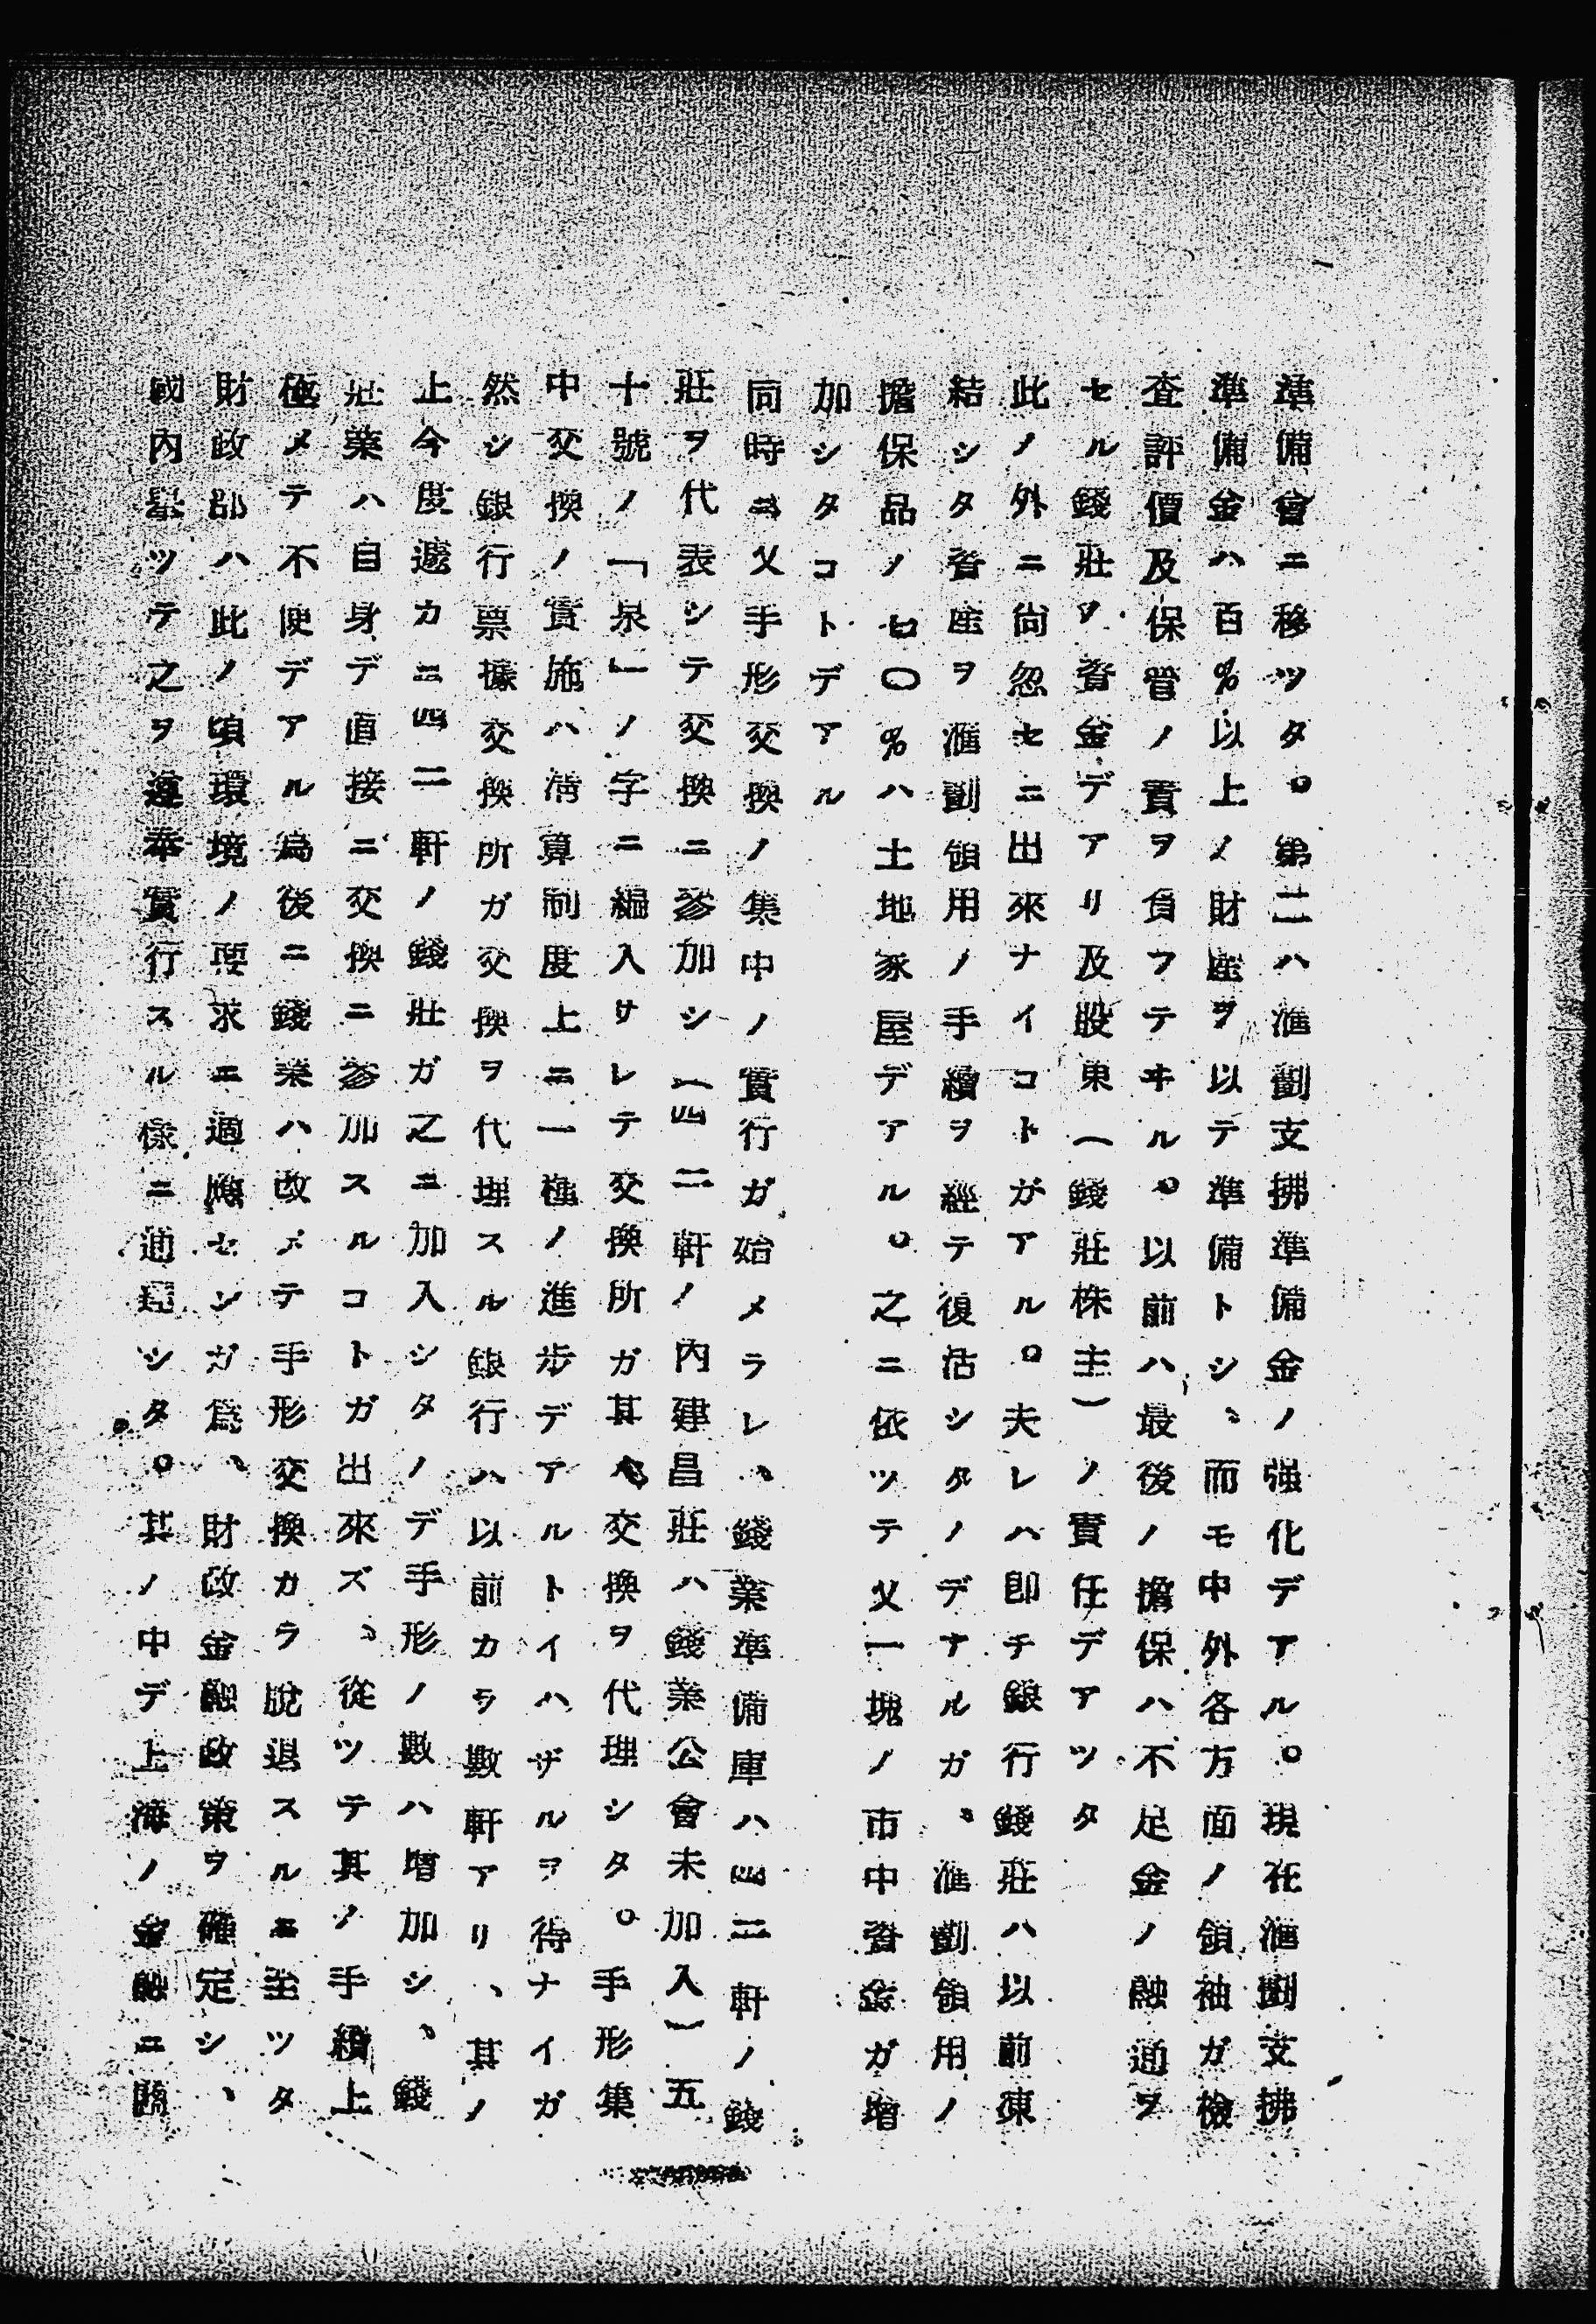 準備會ニ移ツタ。第二ハ滙劃支拂準備金ノ强化デアル。現在滙劃支拂
準備金ハ百％以上ノ財産ヲ以テ準備トシ、而モ中外各方面ノ領袖ガ檢
査評價及保管ノ責ヲ負フテヰル。以前ハ最後ノ擔保ハ不足金ノ融通ヲ
セル錢莊ヲ資金デアリ及股東（錢莊株主）ノ責任デアツタ
此ノ外ニ尙忽セニ出來ナイコトガアル。夫レハ卽チ銀行錢莊ハ以前凍
結シタ資産ヲ滙劃領用ノ手續ヲ經テ復活シタノデナルガ、滙劃領用ノ
擔保品ノ七〇％ハ土地家屋デアル。之ニ依ツテ又一塊ノ市中資金ガ增
加シタコトデアル
同時ニ又手形交換ノ集中ノ實行ガ始メラレ、錢業準備庫ハ四二軒ノ錢
莊ヲ代表シテ交換ニ參加シ（四二軒ノ內建昌莊ハ錢業公會未加入）五
十號ノ「泉」ノ字ニ編入サレテ交換所ガ其ノ交換ヲ代理シタ。手形集
中交換ノ實施ハ淸算制度上ニ一種ノ進步デアルトイハザルヲ得ナイガ
然シ銀行票據交換所ガ交換ヲ代理スル銀行ハ以前カラ數軒アリ、其ノ
上今度遽カニ四二軒ノ錢莊ガ之ニ加入シタノデ手形ノ數ハ增加シ、錢
莊業ハ自身デ直接ニ交換ニ參加スルコトガ出來ズ、從ツテ其ノ手續上
極メテ不便デアル爲後ニ錢業ハ改メテ手形交換カラ脫退スルニ至ツタ
財政部ハ此ノ頃環境ノ要求ニ適應センガ爲、財政金融政策ヲ確定シ、
國內擧ツテ之ヲ遵奉實行スル樣ニ通電シタ。其ノ中デ上海ノ金融ニ關